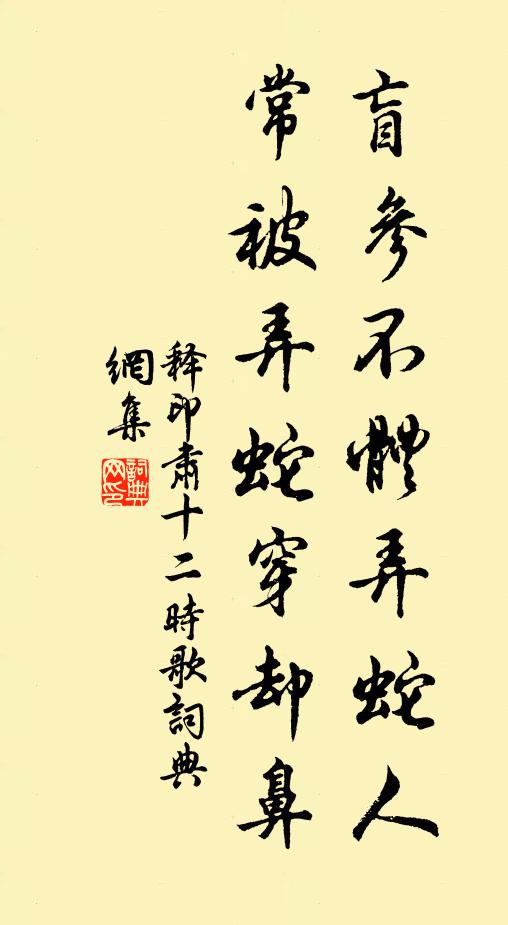 盲參不體弄蛇人
常被弄蛇穿却鼻
释印肅十二時歌詞典
網集
詞典
网印